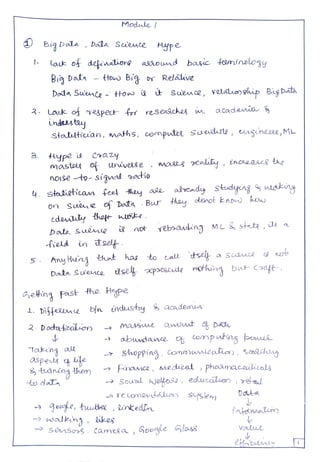 Module 1
① Big Data, Data Science Hype
1. lack of definitions around basic terminology
Big Data - How Big or Relative
Data Science - How is it Science, relationship Big Data
2. Lack of respect for researches in academia &
industry
Statistician, maths, computer Scientists, engineers, ML
3. Hype is Crazy
masters of universe. makes reality, increases the
noise-to-signal ratio
4. statistician feel they are already studying & working
on Science of Data. But they donot know how
identity theft works.
Data Science is not rebranding ML & stats, its a
field in itself.
5. Anything that has to call itself a science is not
Data Science itself represents nothing but Craft.
Getting past the Hype
1. Difference b/n industry & academia
2. Datafication → massive amount of Data
↓ → abundance of computing power
Taking all → shopping, communication,
aspects of life → Finance, Medical, pharmaceuticals
& turning them → social welfare, education, retail
to data → recommendation system Data
→ google, twitter, linkedin ↓ Information
→ walking, likes ↓
→ sensors, camera, Google Glass value
↓
1